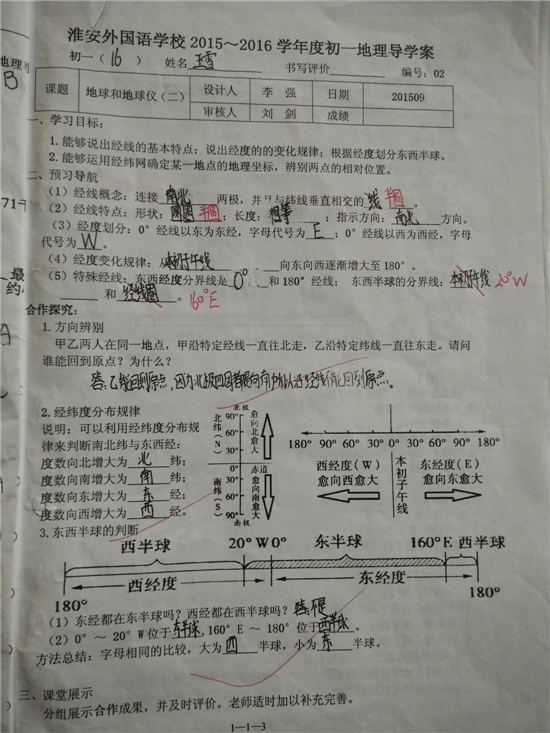 淮安外国语学校 2015～2016 学年度初一地理导学案
初一（ 16 ） 姓名 书写评价 编号：02
地理
B
课题 地球和地球仪（二） 设计人 李 强 日期 201509
审核人 刘 剑 成绩
一、学习目标：
1. 能够说出经线的基本特点；说出经度的的变化规律；根据经度划分东西半球。
2. 能够运用经纬网确定某一地点的地理坐标，辨别两点的相对位置。
二、预习导航
（1）经线概念：连接 南北 两极，并且与纬线垂直相交的 线 半圆
（2）经线特点：形状： 半圆 ；长度： 相等 ；指示方向： 南北 方向。
（3）经度划分：0° 经线以东为东经，字母代号为 E ；0° 经线以西为西经，字母
代号为 W 。
（4）经度变化规律：从 本初子午线 向东向西逐渐增大至 180°。
（5）特殊经线：东西经度分界线是 0° 和 180° 经线； 东西半球的分界线： 本初子午线 20°W
和 经线圈 。 160°E
合作探究：
1. 方向辨别
甲乙两人在同一地点，甲沿特定经线一直往北走，乙沿特定纬线一直往东走。请问
谁能回到原点？为什么？
答：乙能回到原点，因为北极四周都是向南
2. 经纬度分布规律
说明：可以利用经纬度分布规
律来判断南北纬与东西经：
度数向北增大为 北 纬；
度数向南增大为 南 纬；
度数向东增大为 东 经；
度数向西增大为 西 经。
北极
北纬（N） 90° 60° 30° 0° 愈向北愈大
赤道
南纬（S） 30° 60° 90° 愈向南愈大
南极
180° 90° 60° 30° 0° 30° 60° 90° 180°
西经度（W） 愈向西愈大
本初子午线
东经度（E） 愈向东愈大
3. 东西半球的判断
西半球 20° W 0° 东半球 160° E 西半球
西经度 东经度
180° 180°
（1）东经都在东半球吗？西经都在西半球吗？ 答：不是
（2）0° ～ 20° W 位于 东半球 ,160° E ～ 180° 位于 西半球 。
方法总结：字母相同的比较，大为 西 半球，小为 东 半球。
三、课堂展示
分组展示合作成果，并及时评价。老师适时加以补充完善。
1—1—3